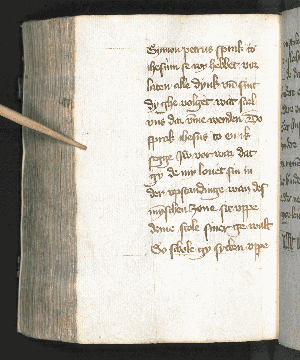 Symon petrus sprak to
ihesum se wy hebbet vor
laten alle dynk vnd sint
dy ghe volget wat schal
vns dar vme werden Do
sprak ihesus to en ik
segge iw vor war dat
gy de my louet sin in
der vpstandinge wan des
mynschen zone sit vppe
deme stole siner ge walt
So schole gy sytten vppe